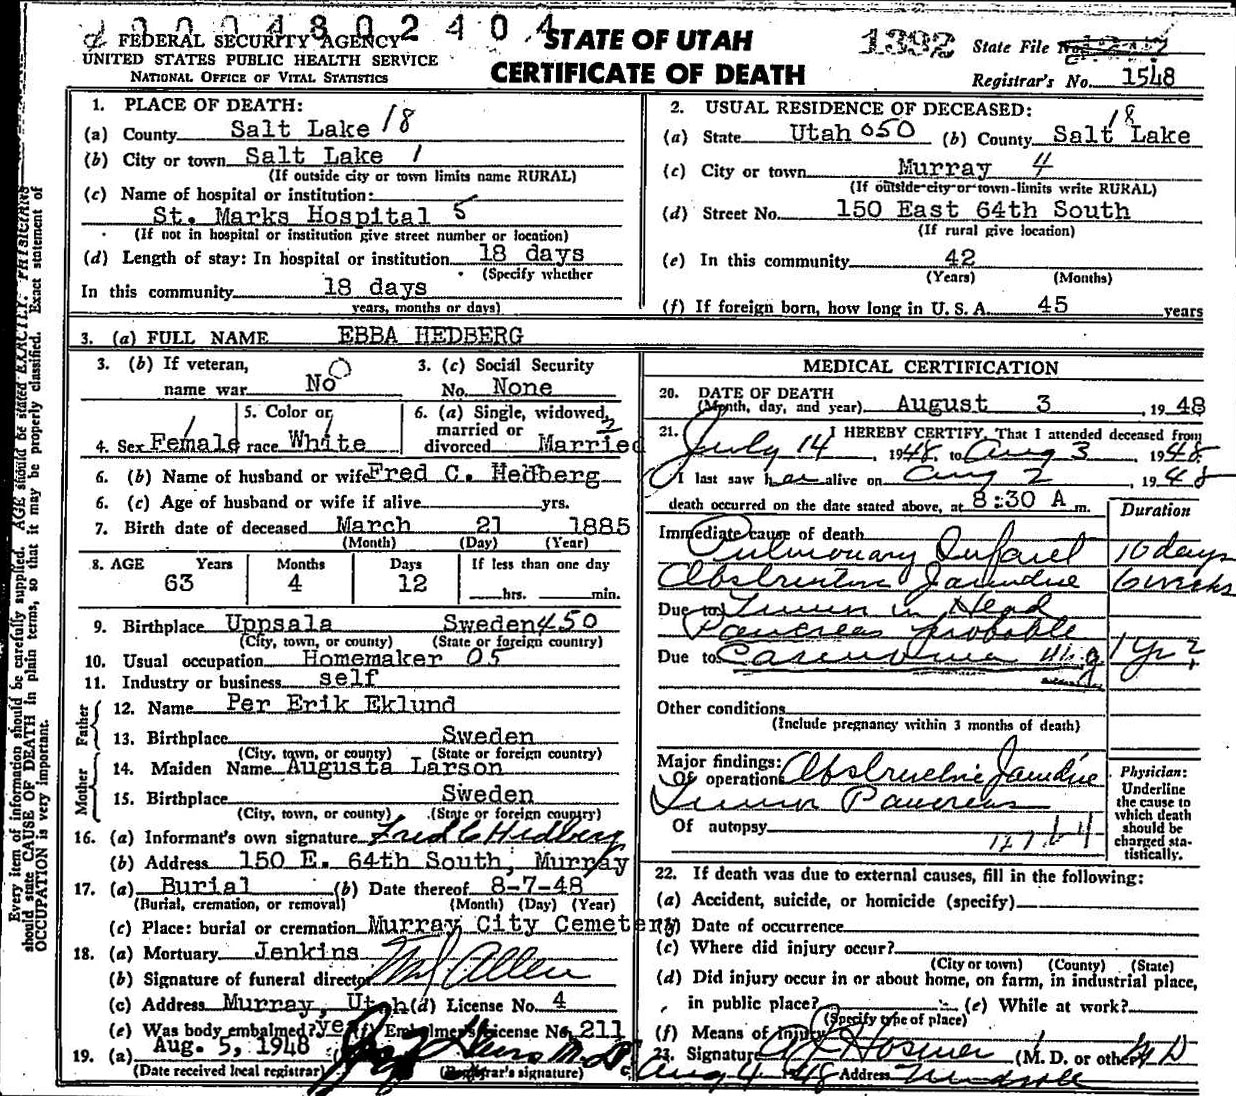 1 3 0 0 4 8 0 2 4 0 4
FEDERAL SECURITY AGENCY
UNITED STATES PUBLIC HEALTH SERVICE
NATIONAL OFFICE OF VITAL STATISTICS
STATE OF UTAH
CERTIFICATE OF DEATH
1392 State File No.
Registrar's No. 1548
1. PLACE OF DEATH:
(a) County Salt Lake 18
(b) City or town Salt Lake 1
(If outside city or town limits name RURAL)
(c) Name of hospital or institution:
St. Marks Hospital 5
(If not in hospital or institution give street number or location)
(d) Length of stay: In hospital or institution 18 days
(Specify whether
In this community 18 days
years, months or days)
2. USUAL RESIDENCE OF DECEASED:
(a) State Utah 050 (b) County Salt Lake 18
(c) City or town Murray 4
(If outside city or town limits write RURAL)
(d) Street No. 150 East 64th South
(If rural give location)
(e) In this community 42
(Years) (Months)
(f) If foreign born, how long in U. S. A. 45 years
3. (a) FULL NAME EBBA HEDBERG
3. (b) If veteran,
name war No 0
3. (c) Social Security
No. None
4. Sex Female 1
5. Color or
race White 1
6. (a) Single, widowed,
married or
divorced Married 2
6. (b) Name of husband or wife Fred C. Hedberg
6. (c) Age of husband or wife if alive yrs.
7. Birth date of deceased March 21 1885
(Month) (Day) (Year)
8. AGE Years Months Days If less than one day
63 4 12 hrs. min.
9. Birthplace Uppsala Sweden 450
(City, town, or county) (State or foreign country)
10. Usual occupation Homemaker 05
11. Industry or business self
Father
12. Name Per Erik Eklund
13. Birthplace Sweden
(City, town, or county) (State or foreign country)
Mother
14. Maiden Name Augusta Larson
15. Birthplace Sweden
(City, town, or county) (State or foreign country)
16. (a) Informant's own signature Fred C Hedberg
(b) Address 150 E. 64th South, Murray
17. (a) Burial (b) Date thereof 8-7-48
(Burial, cremation, or removal) (Month) (Day) (Year)
(c) Place: burial or cremation Murray City Cemetery
18. (a) Mortuary Jenkins
(b) Signature of funeral director Allen
(c) Address Murray, Utah (d) License No. 4
(e) Was body embalmed? yes (f) Embalmer's License No. 211
19. (a) Aug. 5, 1948
(Date received local registrar) (Registrar's signature)
MEDICAL CERTIFICATION
20. DATE OF DEATH
(Month, day, and year) August 3, 1948
21. I HEREBY CERTIFY, That I attended deceased from
July 14, 1948, to Aug 3, 1948
I last saw her alive on Aug 2, 1948
death occurred on the date stated above, at 8:30 A m.
Duration
Immediate cause of death
Pulmonary Infarct 10 days
Obstructive Jaundice 6 weeks
Due to Tumor in Head
Pancreas probable
Due to Carcinoma 1 yr ?
Other conditions
(Include pregnancy within 3 months of death)
Major findings:
Of operations Obstructive Jaundice
Tumor Pancreas
Of autopsy
Physician:
Underline
the cause to
which death
should be
charged sta-
tistically.
22. If death was due to external causes, fill in the following:
(a) Accident, suicide, or homicide (specify)
(b) Date of occurrence
(c) Where did injury occur?
(City or town) (County) (State)
(d) Did injury occur in or about home, on farm, in industrial place,
in public place? (e) While at work?
(Specify type of place)
(f) Means of Injury
23. Signature Hosmer (M. D. or other) M D
Aug 4 - 48 Address Midvale
Every item of information should be carefully supplied. AGE should be stated EXACTLY. PHYSICIANS
should state CAUSE OF DEATH in plain terms, so that it may be properly classified. Exact statement of
OCCUPATION is very important.